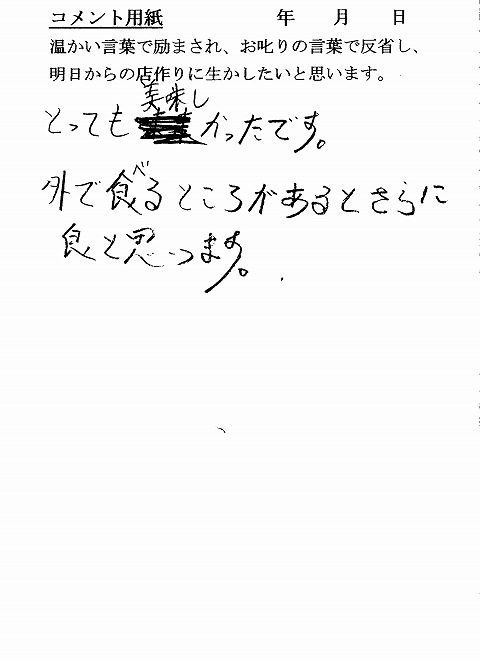 コメント用紙 年 月 日
温かい言葉で励まされ、お叱りの言葉で反省し、
明日からの店作りに生かしたいと思います。
とっても美味しかったです。
外で食べるところがあるとさらに
良と思います。